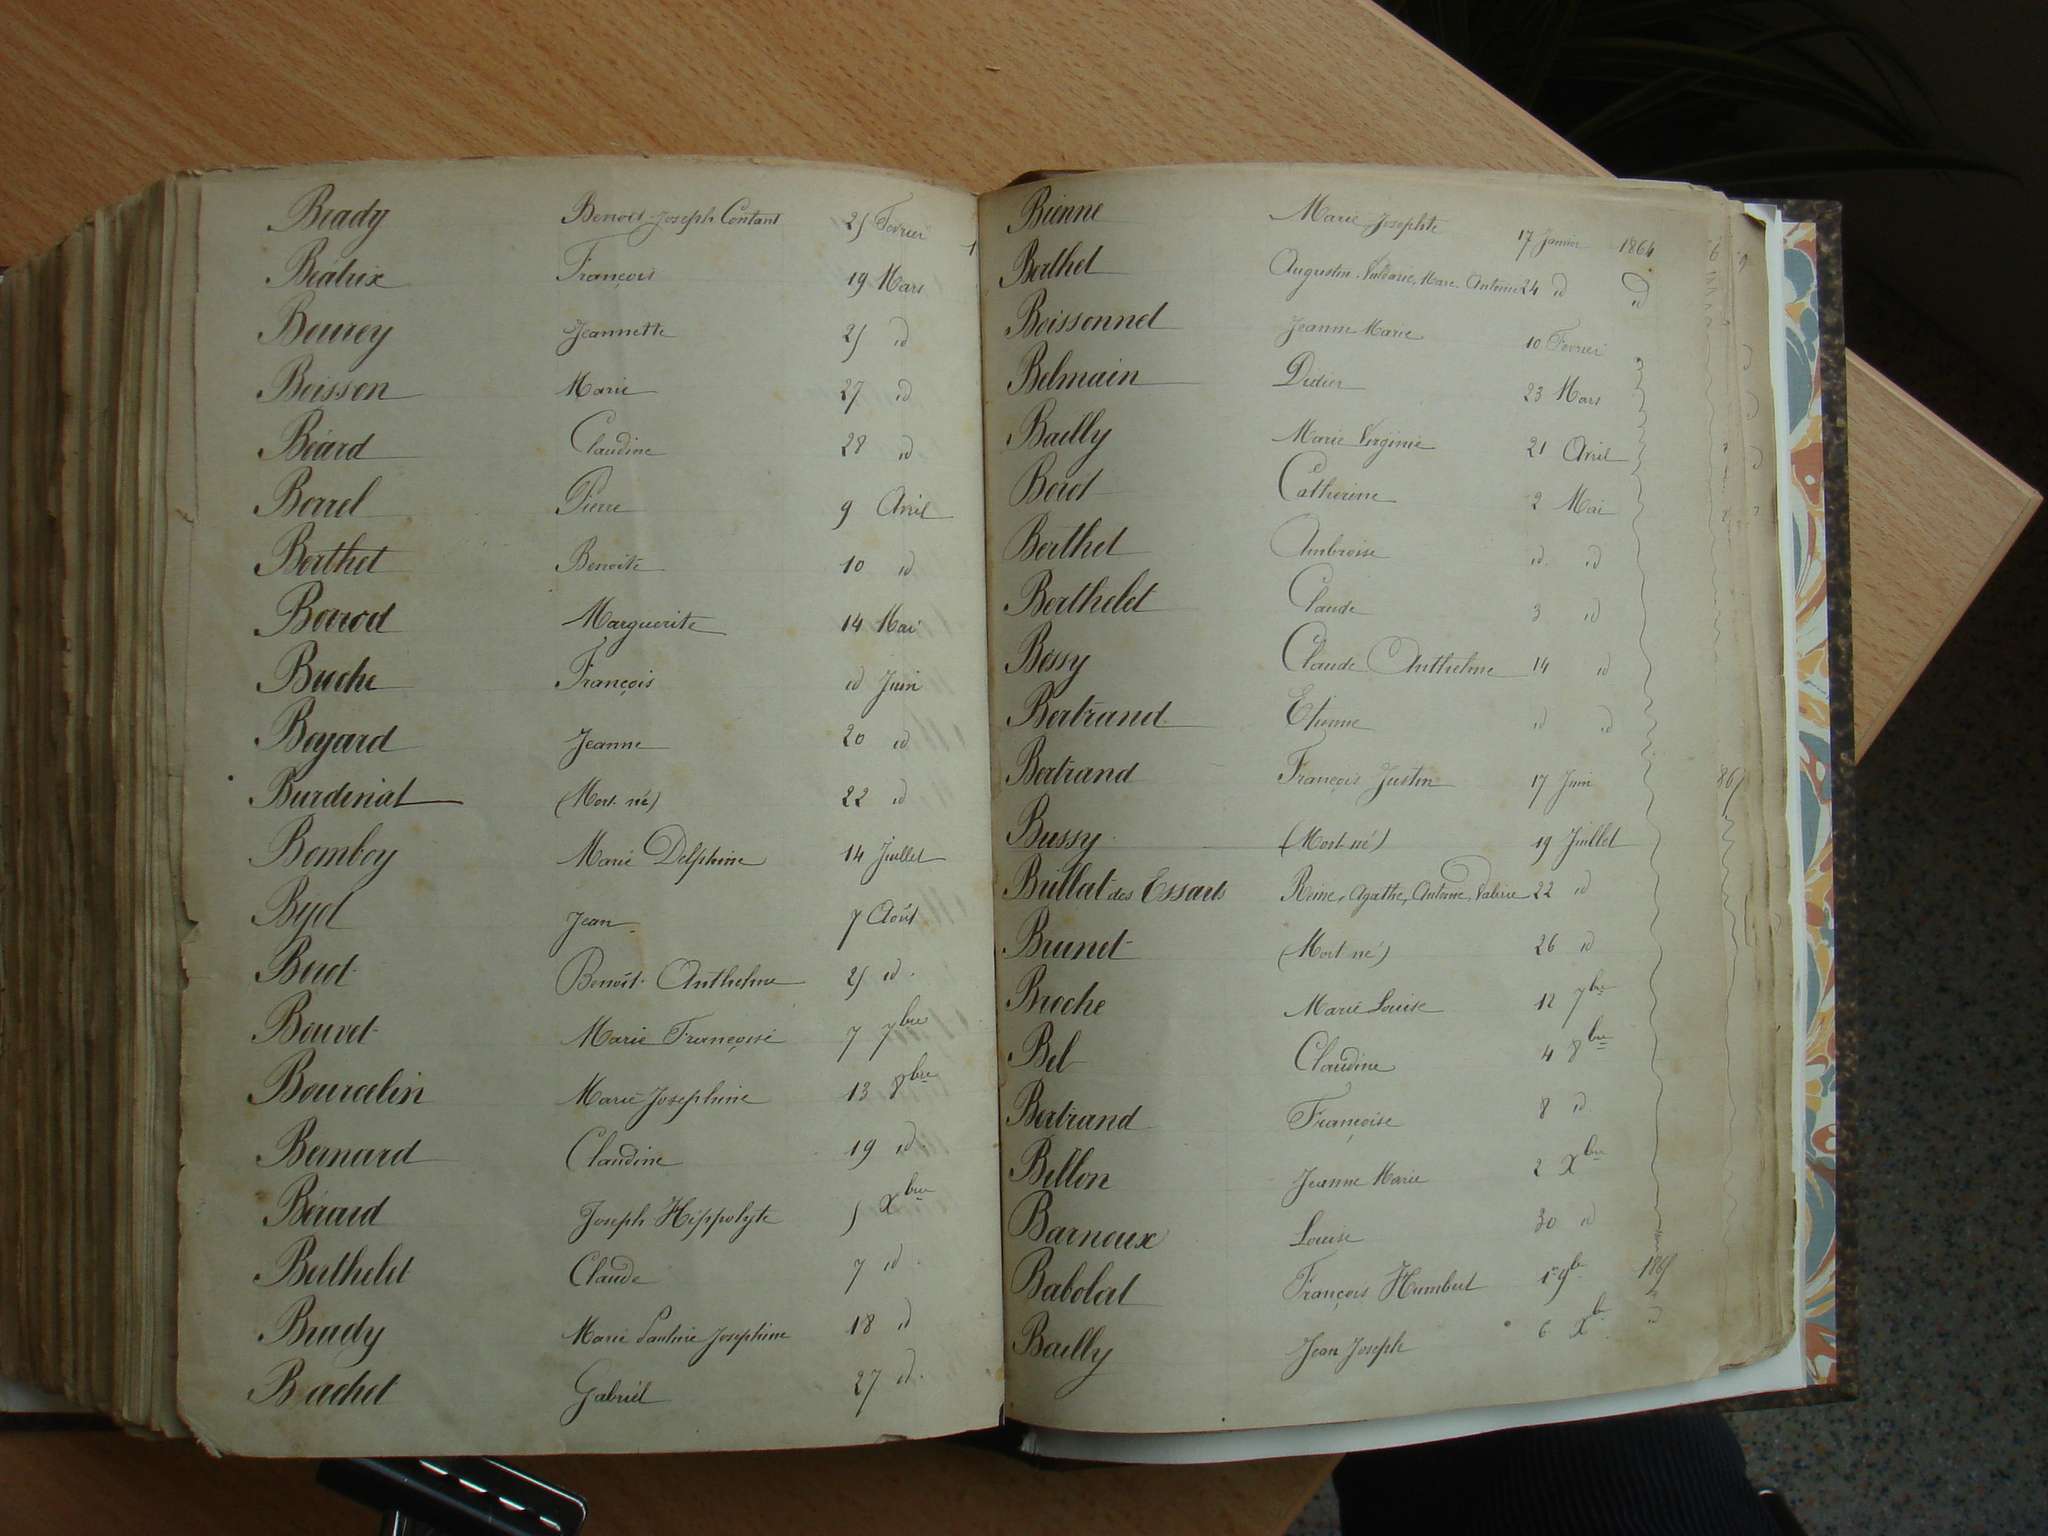 Brady Benoit Joseph Contant 25 Février
Béatrix François 19 Mars
Bourey Jeannette 25 id
Boisson Marie 27 id
Béard Claudine 28 id
Borrel Pierre 9 Avril
Berthet Benoite 10 id
Borrod Marguerite 14 Mai
Buche François id Juin
Boyard Jeanne 20 id
Burdinat (Mort né) 22 id
Bomboy Marie Delphine 14 Juillet
Byot Jean 7 Août
Buet Benoît Anthelme 25 id
Bouvet Marie Françoise 7 7bre
Bourcelin Marie Josephine 13 8bre
Bernard Claudine 19 id
Bérard Joseph Hippolyte 5 Xbre
Berthelet Claude 7 id
Brady Marie Josephine 18 id
Bachet Gabriel 27 id
Bienne Marie Josephte 17 Janvier 1864
Berthet Augustin Marc Antoine 24 id id
Boissonnet Jeanne Marie 10 Février
Belmain Didier 23 Mars
Bailly Marie Virginie 21 Avril
Borot Catherine 2 Mai
Berthet Ambroise id id
Berthelet Claude 3 id
Bossy Claude Anthelme 14 id
Bertrand Etienne id id
Bertrand François Justin 17 Juin
Bussy (Mort né) 19 Juillet
Brillat des Essarts Reine, Agathe, Antoine, Valérie 22 id
Brunet (Mort né) 26 id
Broche Marie Louise 12 7bre
Bel Claudine 4 8bre
Bertrand Françoise 8 id
Bellon Jeanne Marie 2 Xbre
Barnoux Louise 30 id
Babolat François Humbert 1er 9b 1865
Bailly Jean Joseph 6 Xb id